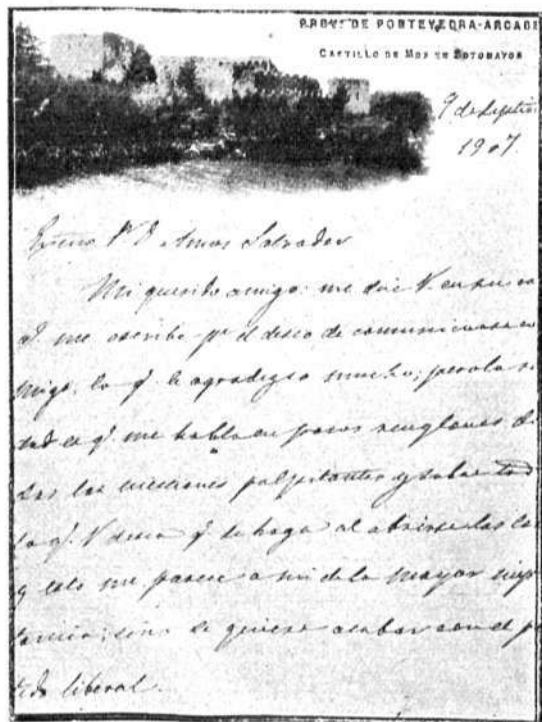 PROV. DE PONTEVEDRA-ARCADE
CASTILLO DE MOS EN SOTOMAYOR
9 de Septie
1907.
Excmo Sr D Amos Salvador
Mi querido amigo: me dice V. en su ca
q. me escribe pr el deseo de comunicarse co
migo, lo q. le agradezco mucho; pero la ve
dad es q. me habla en pocos renglones de
das las cuestiones palpitantes y sobre tod
lo q. V desea q. se haga al abrirse las Co
y esto me parece a mi de la mayor imp
tancia; sino se quiere acabar con el pa
tido liberal.